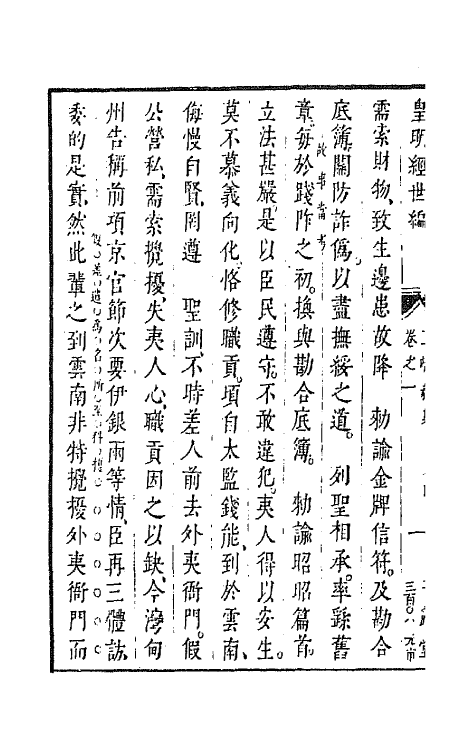 皇明經世編
卷之一
需索財物、致生邊患、故降 勅諭金牌信符、及勘合
底簿、關防詐僞、以盡撫綏之道。列聖相承、率繇舊
章、每於踐阼之初、換與勘合底簿。勅諭昭昭篇首。
立法甚嚴、是以臣民遵守、不敢違犯、夷人得以安生。
莫不慕義向化、恪修職貢、項自太監錢能、到於雲南、
侮慢自賢、罔遵 聖訓、不時差人前去外夷衙門。假
公營私、需索攪擾、失夷人心、職貢因之以缺、今灣甸
州告稱前項京官節次要伊銀兩等情、臣再三體訪、
委的是實、然此輩之到雲南、非特攪擾外夷衙門而